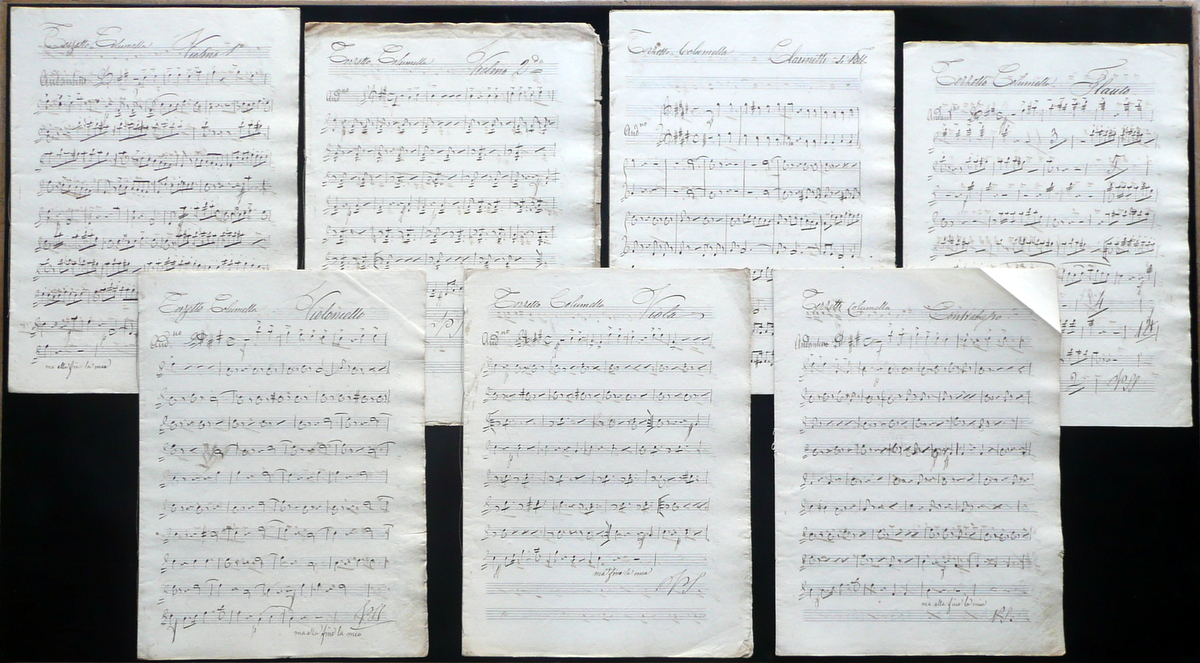 Terzetto Columella Violino 1º
Andantino
ma alla fine la mia
Terzetto Columella Violino 2do
And.no
Terzetto Columella Clarinetti
And.no
Terzetto Columella Flauto
And.no
3
Terzetto Columella Violoncello
And.no
ma alla fine la mia
Terzetto Columella Viola
And.no
ma fine la mia
Terzetto Columella Contrabasso
Andantino
ma alla fine la mia